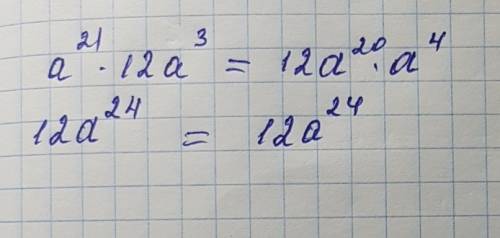 a²¹ · 12a³ = 12a²⁰ · a⁴
12a²⁴ = 12a²⁴